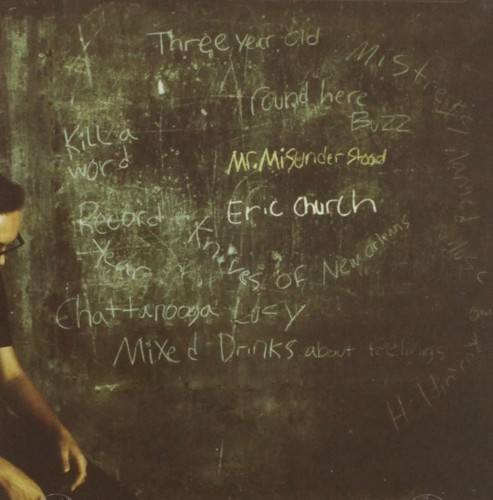 Three year old
Mistress Named Music
round here
Buzz
Kill a
word
Mr. Misunderstood
Eric Church
Record
Year
Knives of New Orleans
Chattanooga Lucy
Mixed Drinks about feelings